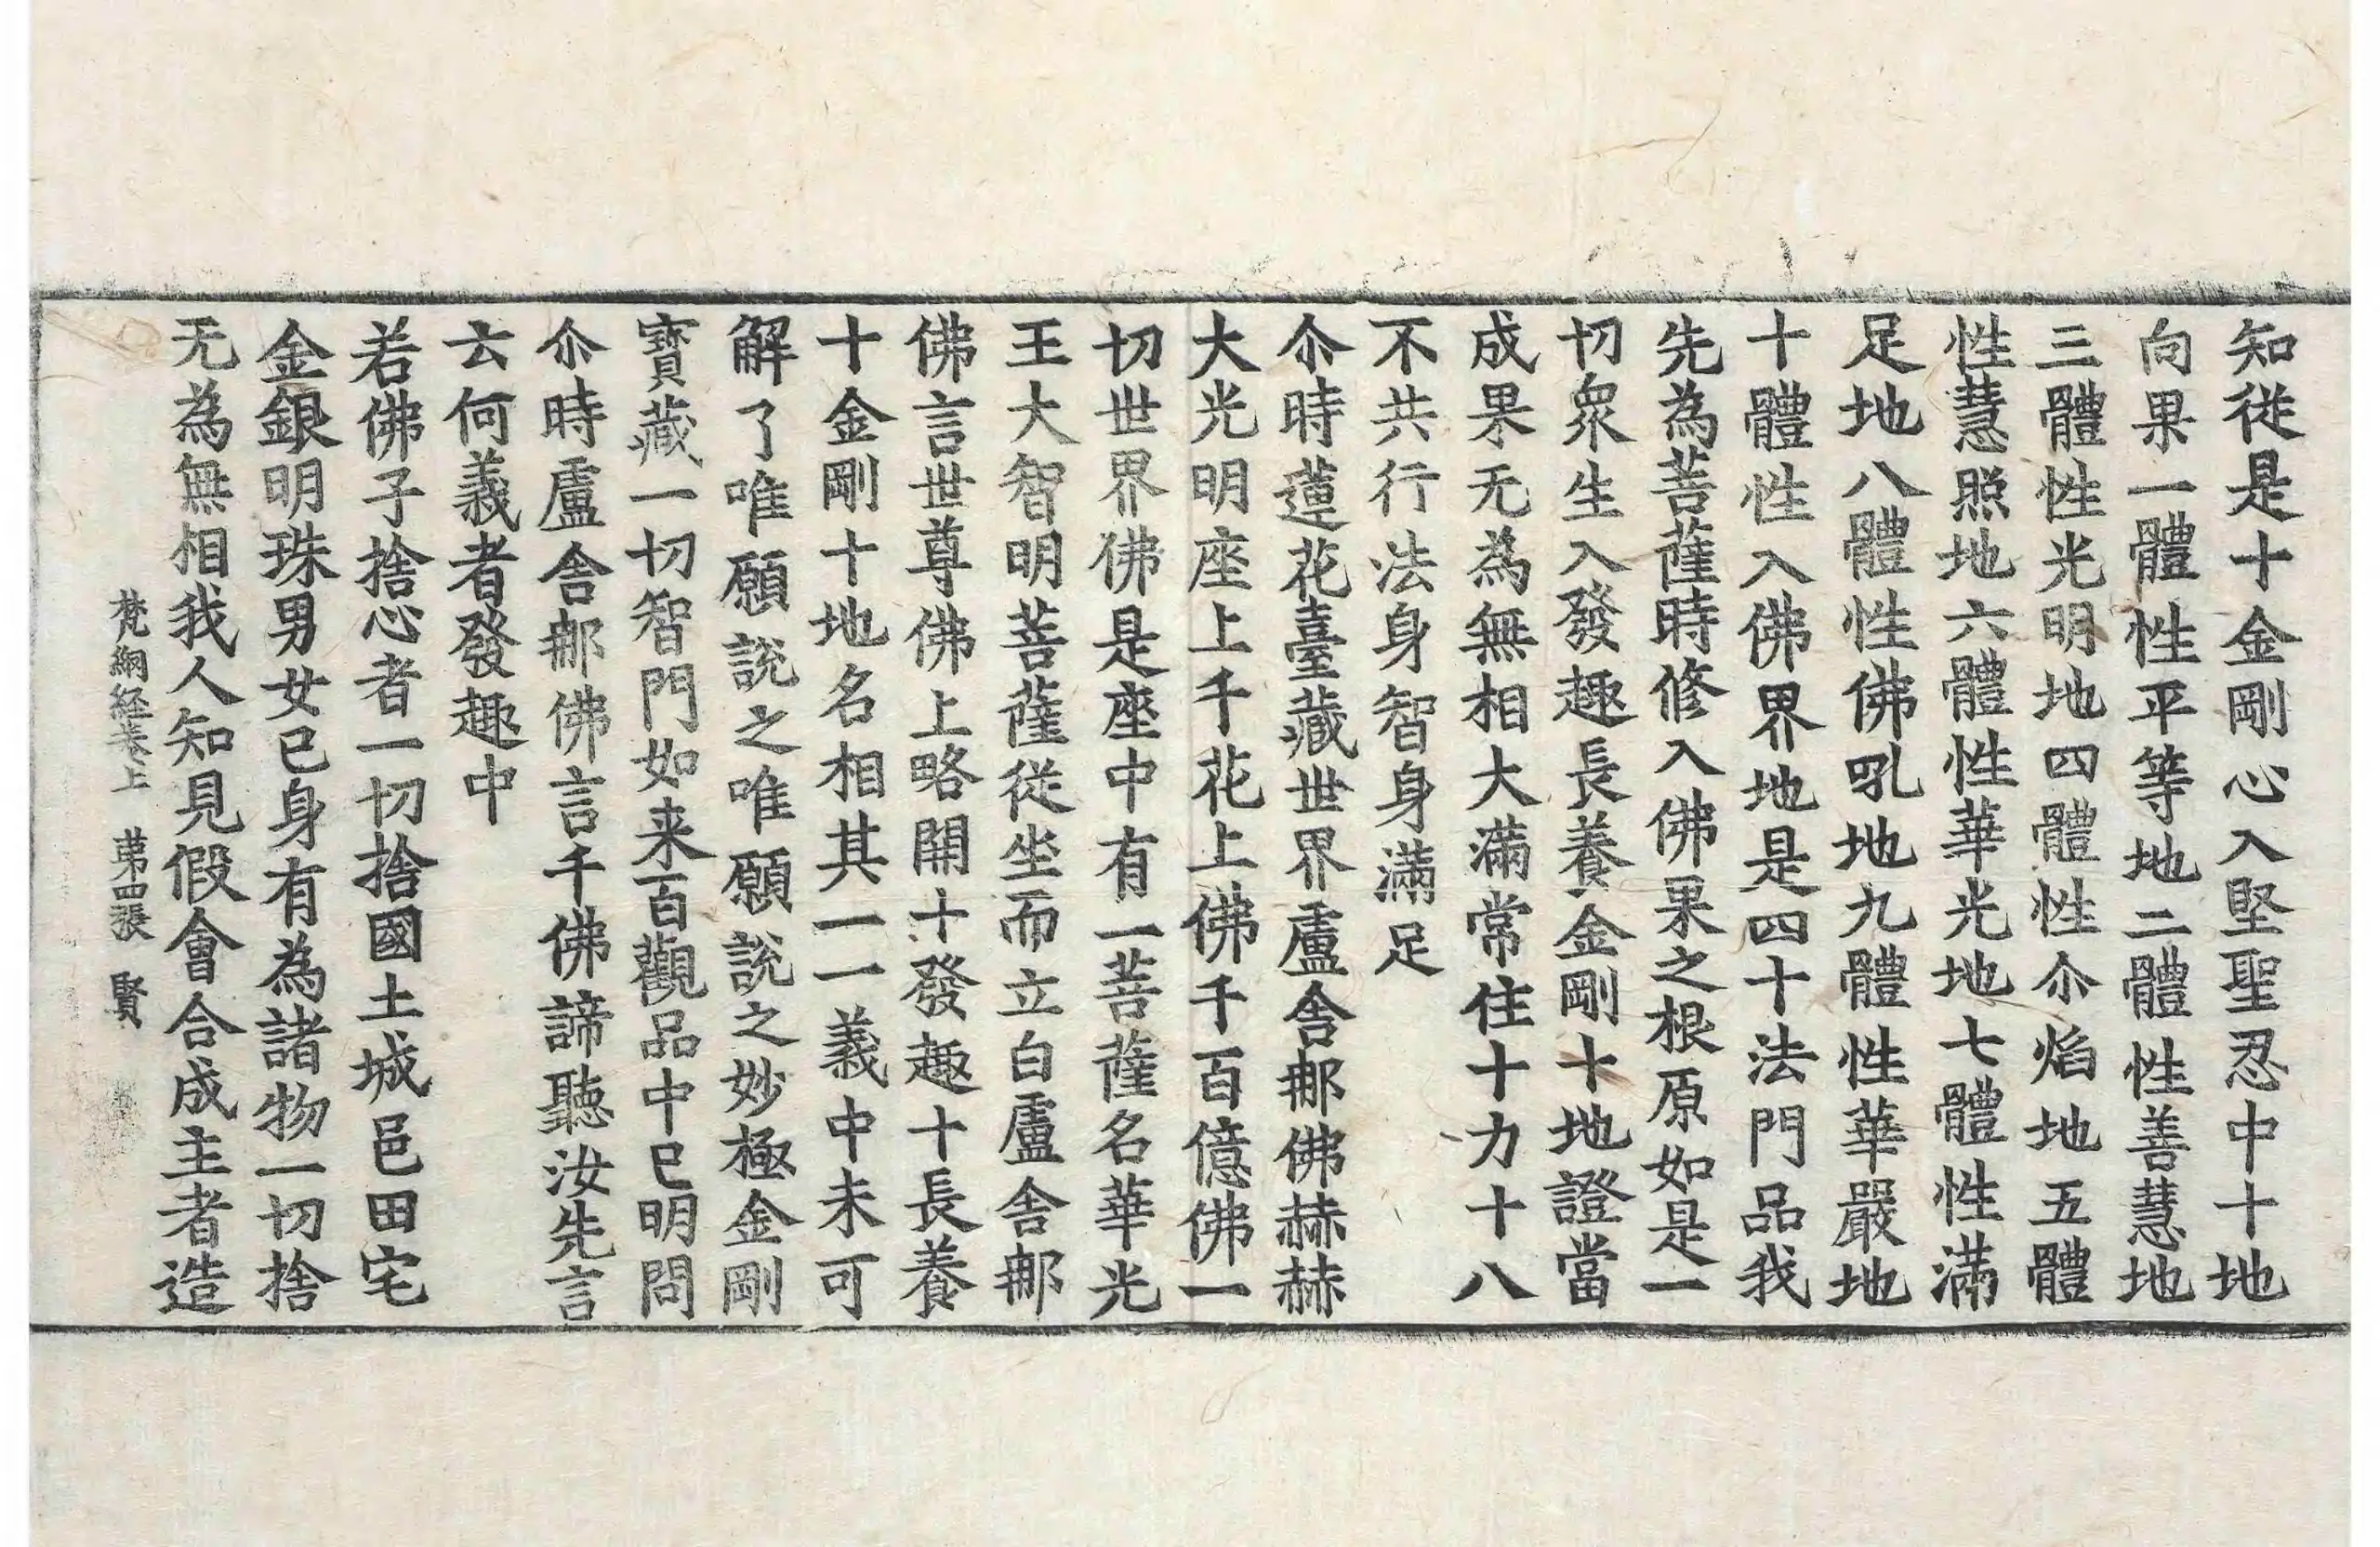 知從是十金剛心入堅聖忍中十地
向果一體性平等地二體性善慧地
三體性光明地四體性尒焰地五體
性慧照地六體性華光地七體性滿
足地八體性佛吼地九體性華嚴地
十體性入佛界地是四十法門品我
先為菩薩時修入佛果之根原如是一
切衆生入發趣長養金剛十地證當
成果无為無相大滿常住十力十八
不共行法身智身滿足
尒時蓮花臺藏世界盧舍那佛赫赫
大光明座上千花上佛千百億佛一
切世界佛是座中有一菩薩名華光
王大智明菩薩從坐而立白盧舍那
佛言世尊佛上略開十發趣十長養
十金剛十地名相其一一義中未可
解了唯願說之唯願說之妙極金剛
寶藏一切智門如来百觀品中已明問
尒時盧舍那佛言千佛諦聽汝先言
云何義者發趣中
若佛子捨心者一切捨國土城邑田宅
金銀明珠男女已身有為諸物一切捨
无為無相我人知見假會合成主者造
梵網经卷上 苐四張 賢